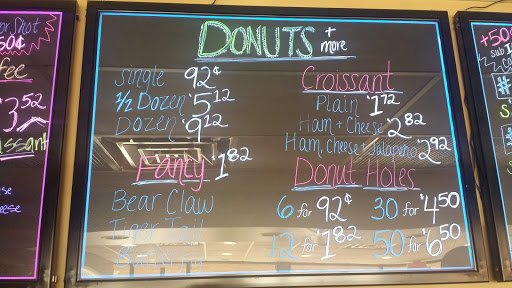 DONUTS + more
Single 92¢
1/2 Dozen $5.12
Dozen $9.12
Fancy $1.82
Bear Claw
Tiger Tail
Croissant
Plain $1.72
Ham + Cheese $2.82
Ham, Cheese + Jalapeño $2.92
Donut Holes
6 for 92¢ 30 for $4.50
12 for $1.82 50 for $6.50
or Shot
50¢
$3.52
+50¢